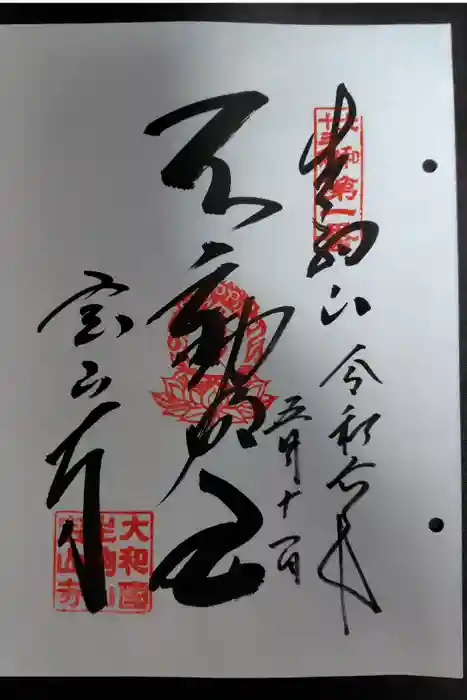 生駒山
大和第一番
十三
令和 年
五月十一日
不動明王
宝山寺
大和國
生駒山
寶山寺